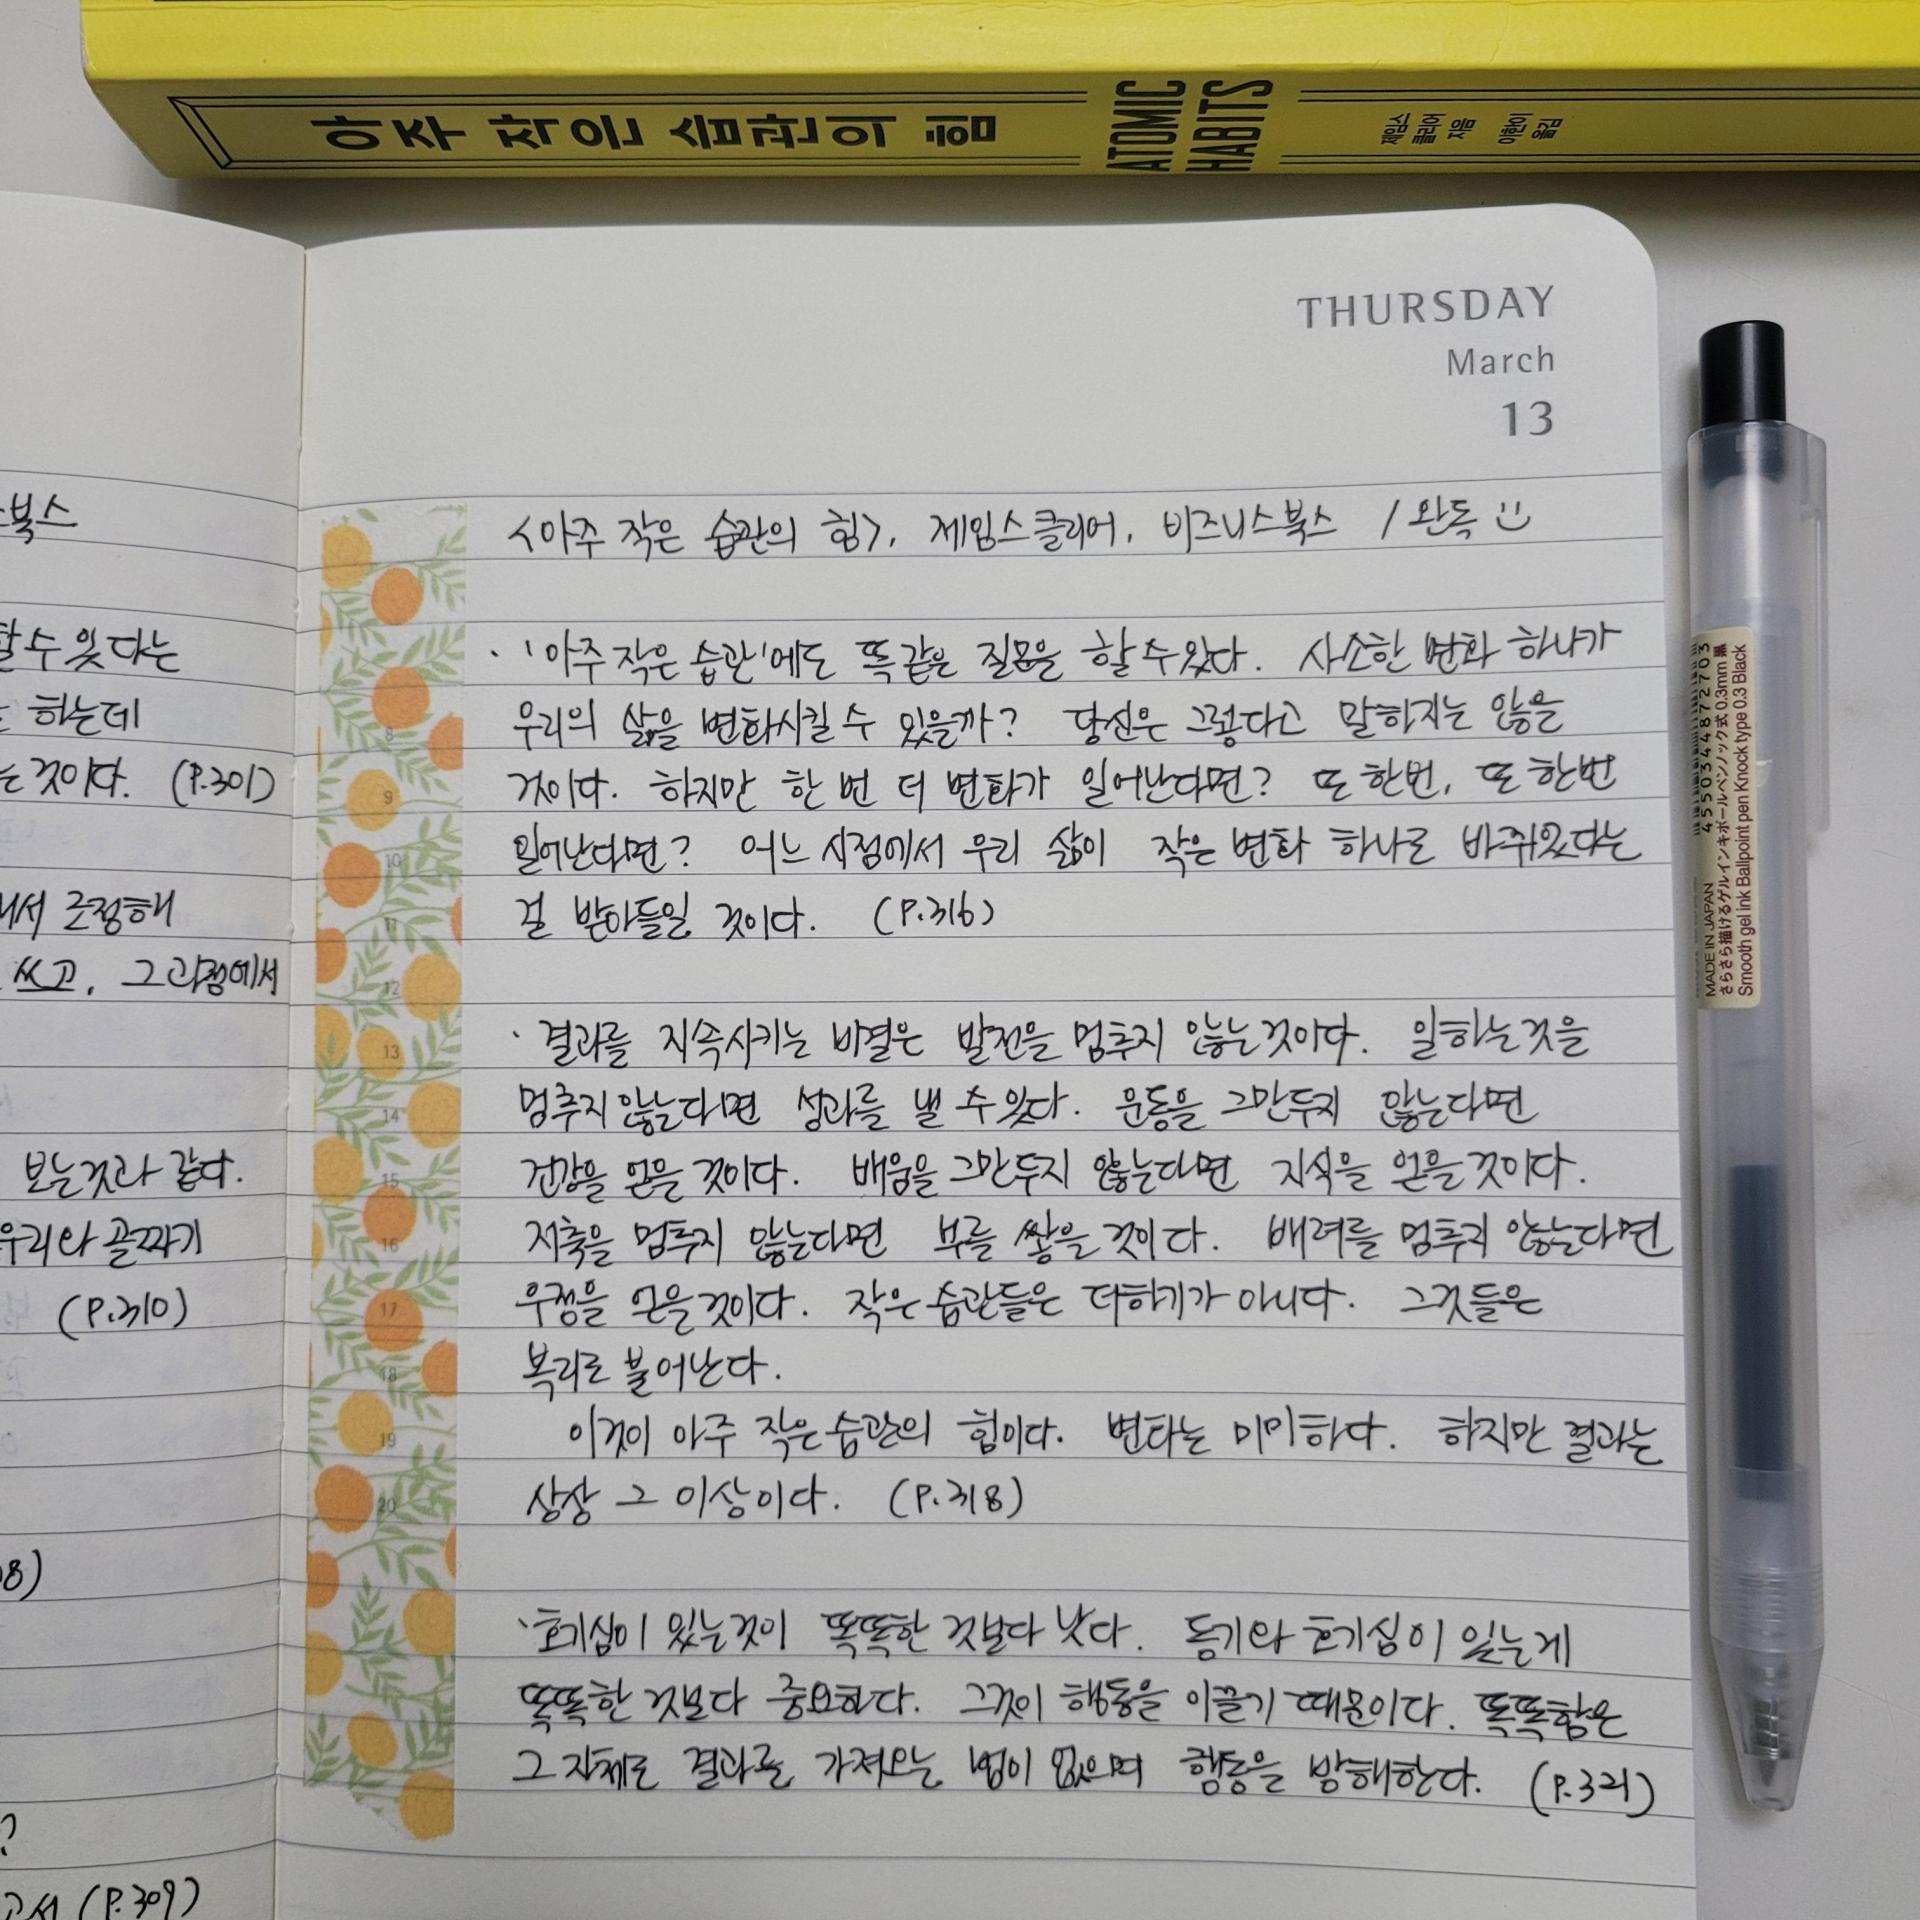 아주 작은 습관의 힘
ATOMIC
HABITS
제임스
클리어
지음
이한이
옮김
THURSDAY
March
13
북스
할 수 있다는
하는데
는 것이다. (P.301)
서 조정해
쓰고, 그 과정에서
보는것과 같다.
우리와 골짜기
(P.310)
08)
?
고서 (P.309)
<아주 작은 습관의 힘>, 제임스클리어, 비즈니스북스 / 완독
· '아주 작은 습관'에도 똑같은 질문을 할 수 있다. 사소한 변화 하나가
우리의 삶을 변화시킬 수 있을까? 당신은 그렇다고 말하지는 않을
것이다. 하지만 한 번 더 변화가 일어난다면? 또 한번, 또 한번
일어난다면? 어느 시점에서 우리 삶이 작은 변화 하나로 바뀌었다는
걸 받아들일 것이다. (P.316)
· 결과를 지속시키는 비결은 발전을 멈추지 않는것이다. 일하는것을
멈추지 않는다면 성과를 낼 수 있다. 운동을 그만두지 않는다면
건강을 얻을 것이다. 배움을 그만두지 않는다면 지식을 얻을 것이다.
저축을 멈추지 않는다면 부를 쌓을 것이다. 배려를 멈추지 않는다면
우정을 얻을것이다. 작은 습관들은 더하기가 아니다. 그것들은
복리로 불어난다.
이것이 아주 작은 습관의 힘이다. 변화는 미미하다. 하지만 결과는
상상 그 이상이다. (P.318)
· 호기심이 있는것이 똑똑한 것보다 낫다. 동기와 호기심이 있는게
똑똑한 것보다 중요하다. 그것이 행동을 이끌기 때문이다. 똑똑함은
그 자체로 결과를 가져오는 법이 없으며 행동을 방해한다. (P.321)
8
9
10
11
12
13
14
15
16
17
18
19
20
4550344872703
MADE IN JAPAN
さらさら描けるゲルインキボールペンノック式 0.3mm 黒
Smooth gel ink Ballpoint pen Knock type 0.3 Black